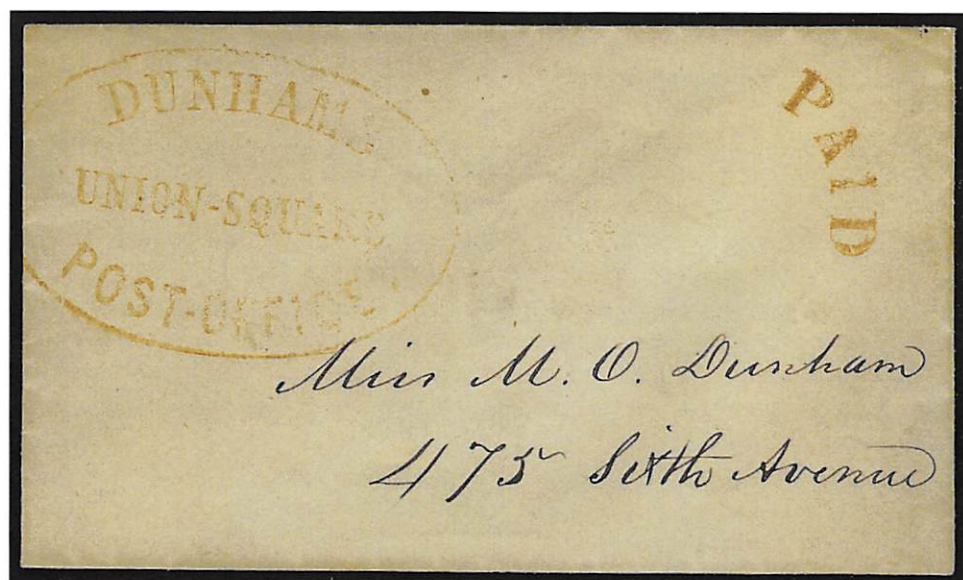 DUNHAMS
UNION-SQUARE
POST-OFFICE.
PAID
Miss M. O. Dunham
475 Sixth Avenue